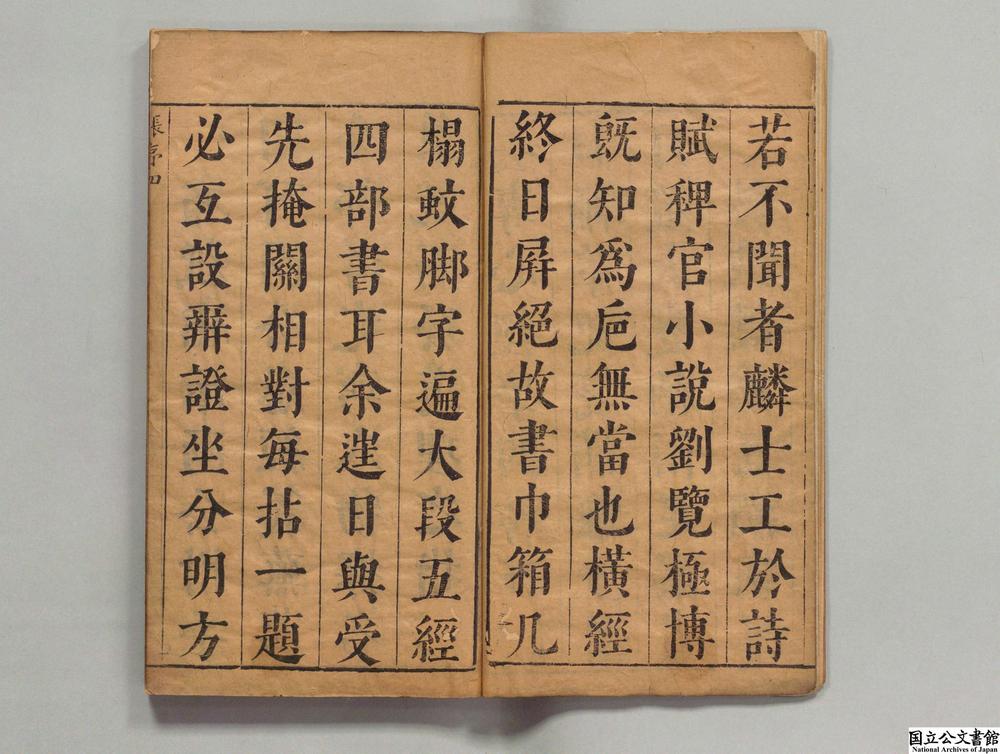 若不聞者麟士工於詩
賦稗官小說劉覽極博
既知為巵無當也橫經
終日屏絕故書巾箱几
榻蚊脚字遍大段五經
四部書耳余逬日與受
先掩關相對每拈一題
必互設辨證坐分明方
張序四
国立公文書館
National Archives of Japan